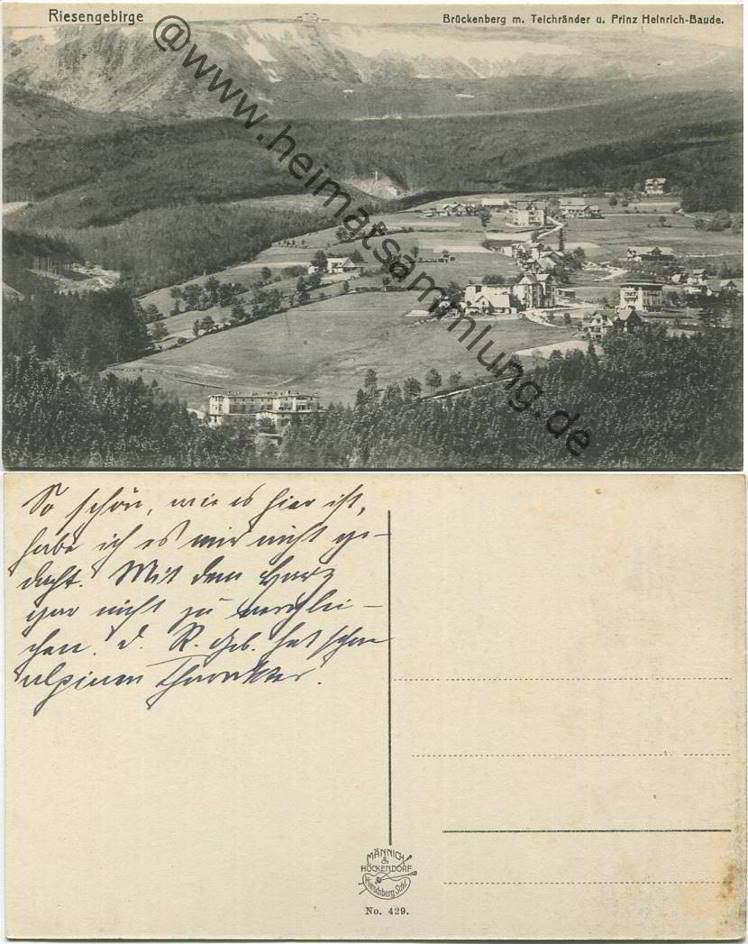 Riesengebirge
Brückenberg m. Teichränder u. Prinz Heinrich-Baude.
@www.heimatsammlung.de
So schön, wie es hier ist,
habe ich es mir nicht ge-
dacht. Mit dem Harz
gar nicht zu verglei-
chen. d. R. Geb. hat schon
alpinen Charakter.
MÄNNICH
&
HÖCKENDORF
Hirschberg Schl.
No. 429.